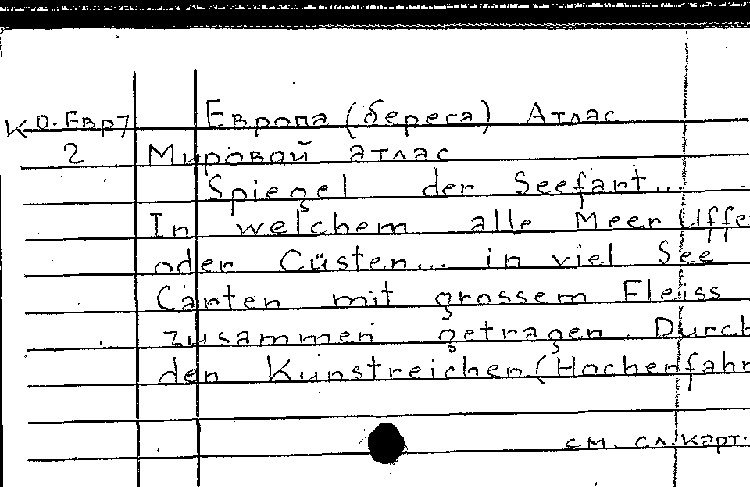 К О-Евр7 Европа (берега) Атлас
2 Мировой атлас
Spiegel der Seefart...
In welchem alle Meer Uffe
oder Cüsten... in viel See
Carten mit grossem Fleiss
zusammen getragen. Durch
den Kunstreichen (Hocherfahr
см. сл. карт.